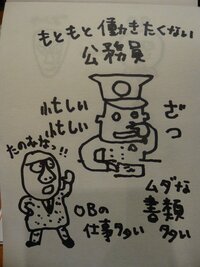 もともと働きたくない
公務員
忙しい
忙しい
ざつ
たのみなっ!!
OBの
仕事多い
ムダな
書類
多い